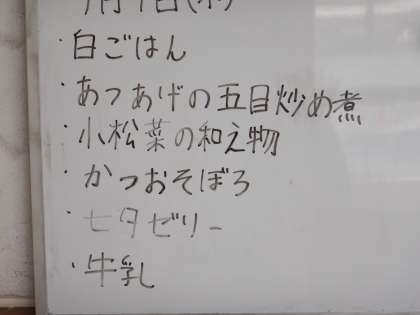 ・白ごはん
・あつあげの五目炒め煮
・小松菜の和え物
・かつおそぼろ
・七夕ゼリー
・牛乳